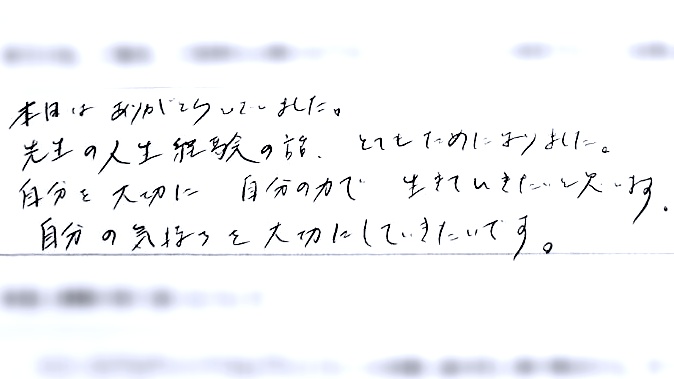 本日はありがとうございました。
先生の人生経験の話、とてもためになりました。
自分を大切に 自分の力で 生きていきたいと思います。
自分の気持ちを大切にしていきたいです。